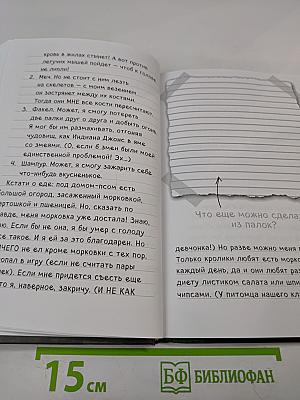 кровь в жилах стынет! А вот против
летучих мышей пойдёт — чтоб к голове
не липли!
2. Меч. Но не стоит с ним лезть
на скелетов — с моим везением
он застрянет между их костями.
Тогда они МНЕ все кости пересчитают
3. Факел. Может, я смогу потереть
две палки друг о друга и добыть огонь
Я мог бы им размахивать, отгоняя
чудовищ, как Индиана Джонс в яме
со змеями. (О, если б змеи были моей
единственной проблемой! Эх...)
4. Шампур. Может, я смогу зажарить себе
что-нибудь вкусненькое.
Кстати о еде: под домом-псом есть
большой огород, засаженный морковкой,
картошкой и пшеницей. Но, сказать по
правде, морковка уже достала! Знаю,
Если бы не она, я бы умер с голоду
все такое. И я ей за это благодарен. Но
НИЧЕГО не ел кроме моркови с тех пор,
попал в игру (если не считать пары
Если мне придётся съесть еще
то я, наверное, закричу. (И НЕ КАК
Что еще можно сдела
из палок?
девчонка!) Но разве можно меня
Только кролики любят есть морков
каждый день, да и они любят раз
диету листиком салата или шпи
чипсами. (У питомца нашего кл
15 см
БФ БИБЛИОФАН